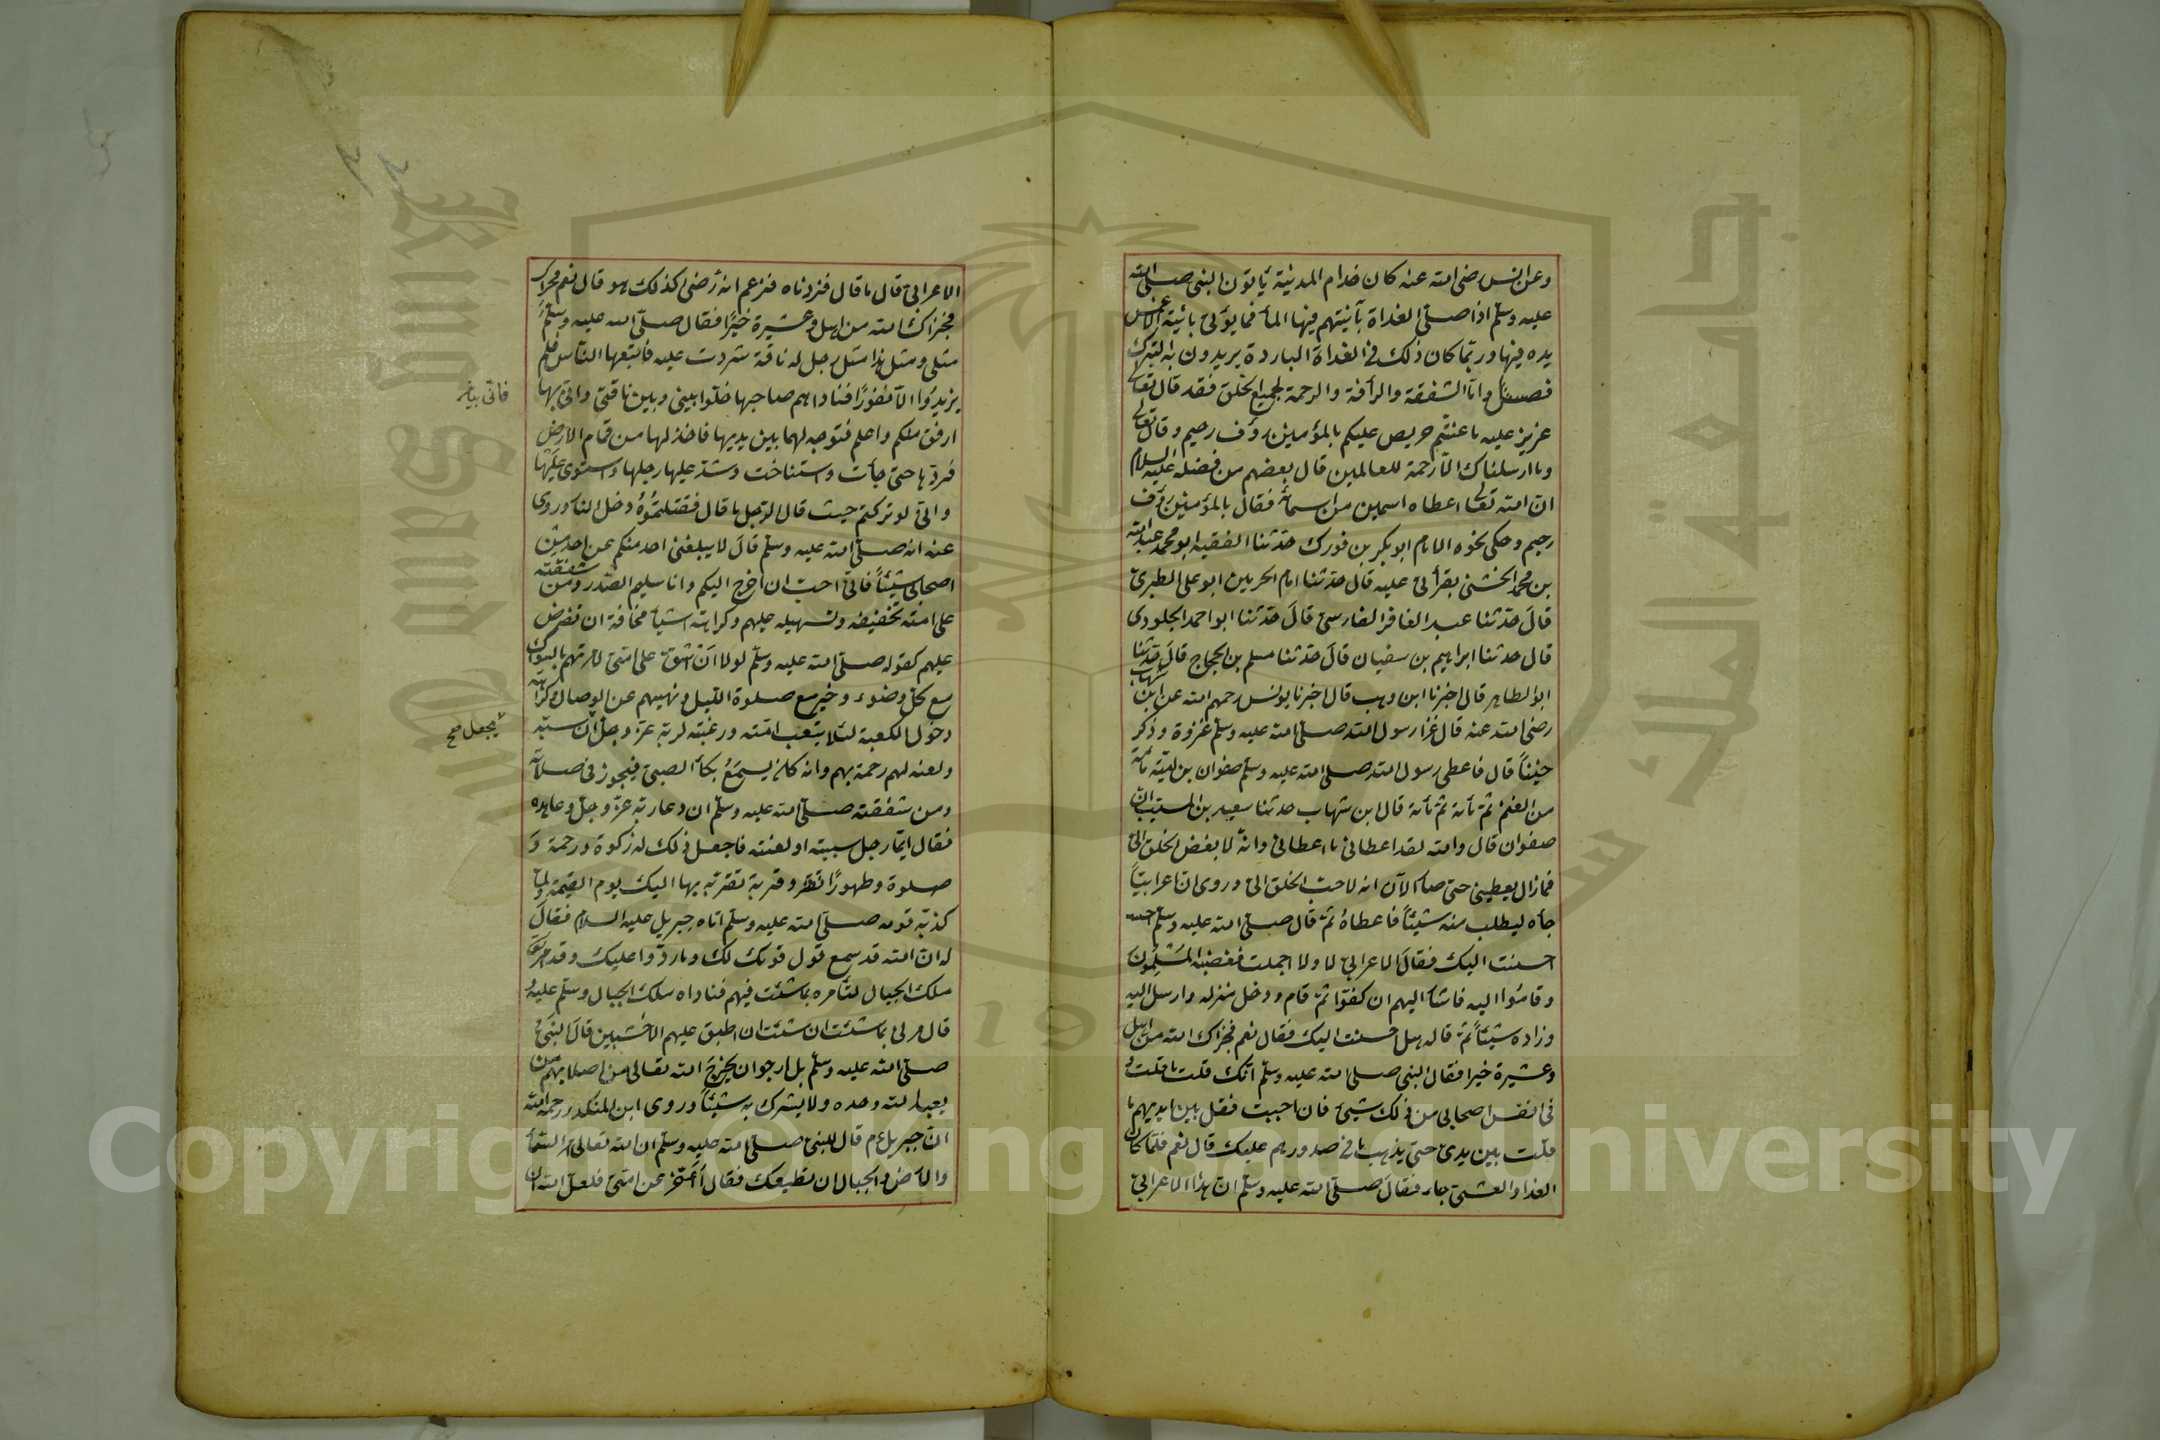 وعن انس رضى الله عنه كان خدام المدينة يأتون النبى صلى الله
عليه وسلم اذا صلى الغداة بآنيتهم فيها الماء فما يؤتى بانية الا غمس
يده فيها وربما كان ذلك فى الغداة الباردة يريدون به التبرك
فصل واما الشفقة والرأفة والرحمة لجميع الخلق فقد قال تعالى
عزيز عليه ما عنتم حريص عليكم بالمؤمنين رؤف رحيم وقال تعالى
وما ارسلناك الا رحمة للعالمين قال بعضهم من فضله عليه السلام
ان الله تعالى اعطاه اسمين من اسمائه فقال بالمؤمنين رؤف
رحيم وحكى نحوه الامام ابو بكر بن فورك حدثنا الفقيه ابو محمد عبد الله
بن محمد الخشنى بقرأتى عليه قال حدثنا امام الحرمين ابو على الطبرى
قال حدثنا عبد الغافر الفارسى قال حدثنا ابو احمد الجلودى
قال حدثنا ابراهيم بن سفيان قال حدثنا مسلم بن الحجاج قال حدثنا
ابو الطاهر قال اخبرنا ابن وهب قال اخبرنا يونس رحمهم الله عن ابن شهاب
رضى الله عنه قال غزا رسول الله صلى الله عليه وسلم غزوة وذكر
حنينا قال فاعطى رسول الله صلى الله عليه وسلم صفوان بن امية مائة
من الغنم ثم مائة ثم مائة قال ابن شهاب حدثنا سعيد بن المسيب ان
صفوان قال والله لقد اعطانى ما اعطانى وانه لابغض الخلق الى
فما زال يعطينى حتى صار الآن انه لاحب الخلق الى وروى ان اعرابيا
جأه ليطلب منه شيئا فاعطاه ثم قال صلى الله عليه وسلم
احسنت اليك فقال الاعرابى لا ولا اجملت فغضب المسلمون
وقاموا اليه فاشار اليهم ان كفوا ثم قام ودخل منزله وارسل اليه
وزاده شيئا ثم قال هل احسنت اليك فقال نعم فجزاك الله من اهل
وعشيرة خيرا فقال النبى صلى الله عليه وسلم انك قلت ما قلت و
فى انفس اصحابى من ذلك شيئ فان احببت فقل بين ايديهم ما
قلت بين يدى حتى يذهب ما فى صدورهم عليك قال نعم فلما كان
الغد او العشى جاء فقال صلى الله عليه وسلم ان هذا الاعرابى
الاعرابى قال ما قال فزدناه فزعم انه رضى كذلك هو قال نعم
فجزاك الله من اهل وعشيرة خيرا فقال صلى الله عليه وسلم
مثلى ومثل هذا مثل رجل له ناقة شردت عليه فاتبعها الناس فلم
يزيدوا الا نفورا فناداهم صاحبها خلوا بينى وبين ناقتى وانى بها
ارفق منكم واعلم فتوجه لها بين يديها فاخذ لها من قمام الارض
فردها حتى جأت واستناخت وشد عليها رحلها واستوى عليها
وانى لو تركتم حيث قال الرجل ما قال فقتلتموه دخل النار وروى
عنه انه صلى الله عليه وسلم قال لا يبلغنى احد منكم عن احد من
اصحابى شيئا فانى احب ان اخرج اليكم وانا سليم الصدر ومن شفقته
على امته تخفيفه وتسهيله عليهم وكراهته اشيأ مخافة ان تفرض
عليهم كقوله صلى الله عليه وسلم لولا ان اشق على امتى لامرتهم بالسواك
مع كل وضوء وخبر صلوة الليل ونهيهم عن الوصال وكراهته
دخول الكعبة لئلا يتعب امته ورغبته لربه عز وجل ان سبه
ولعنه لهم رحمة بهم وانه كان يسمع بكأ الصبى فيتجوز فى صلاته
ومن شفقته صلى الله عليه وسلم ان دعا ربه عز وجل وعاهده
فقال ايما رجل سببته او لعنته فاجعل ذلك له زكوة ورحمة و
صلوة وطهورا وقربة تقربه بها اليك يوم القيمة ولما
كذبه قومه صلى الله عليه وسلم اتاه جبريل عليه السلام فقال
له ان الله قد سمع قول قومك لك وما ردوا عليك وقد امر
ملك الجبال لتأمره بما شئت فيهم فناداه ملك الجبال وسلم عليه و
قال مرنى بما شئت ان شئت ان اطبق عليهم الاخشبين قال النبى
صلى الله عليه وسلم بل ارجو ان يخرج الله تعالى من اصلابهم من
يعبد الله وحده ولا يشرك به شيئا وروى ابن المنكدر رحمه الله
ان جبريل عم قال للنبى صلى الله عليه وسلم ان الله تعالى امر السمأ
والارض والجبال ان تطيعك فقال أأخر عن امتى فلعل الله ان
يجعل صح
Copyright © King Saud University
جامعة الملك سعود
King Saud University